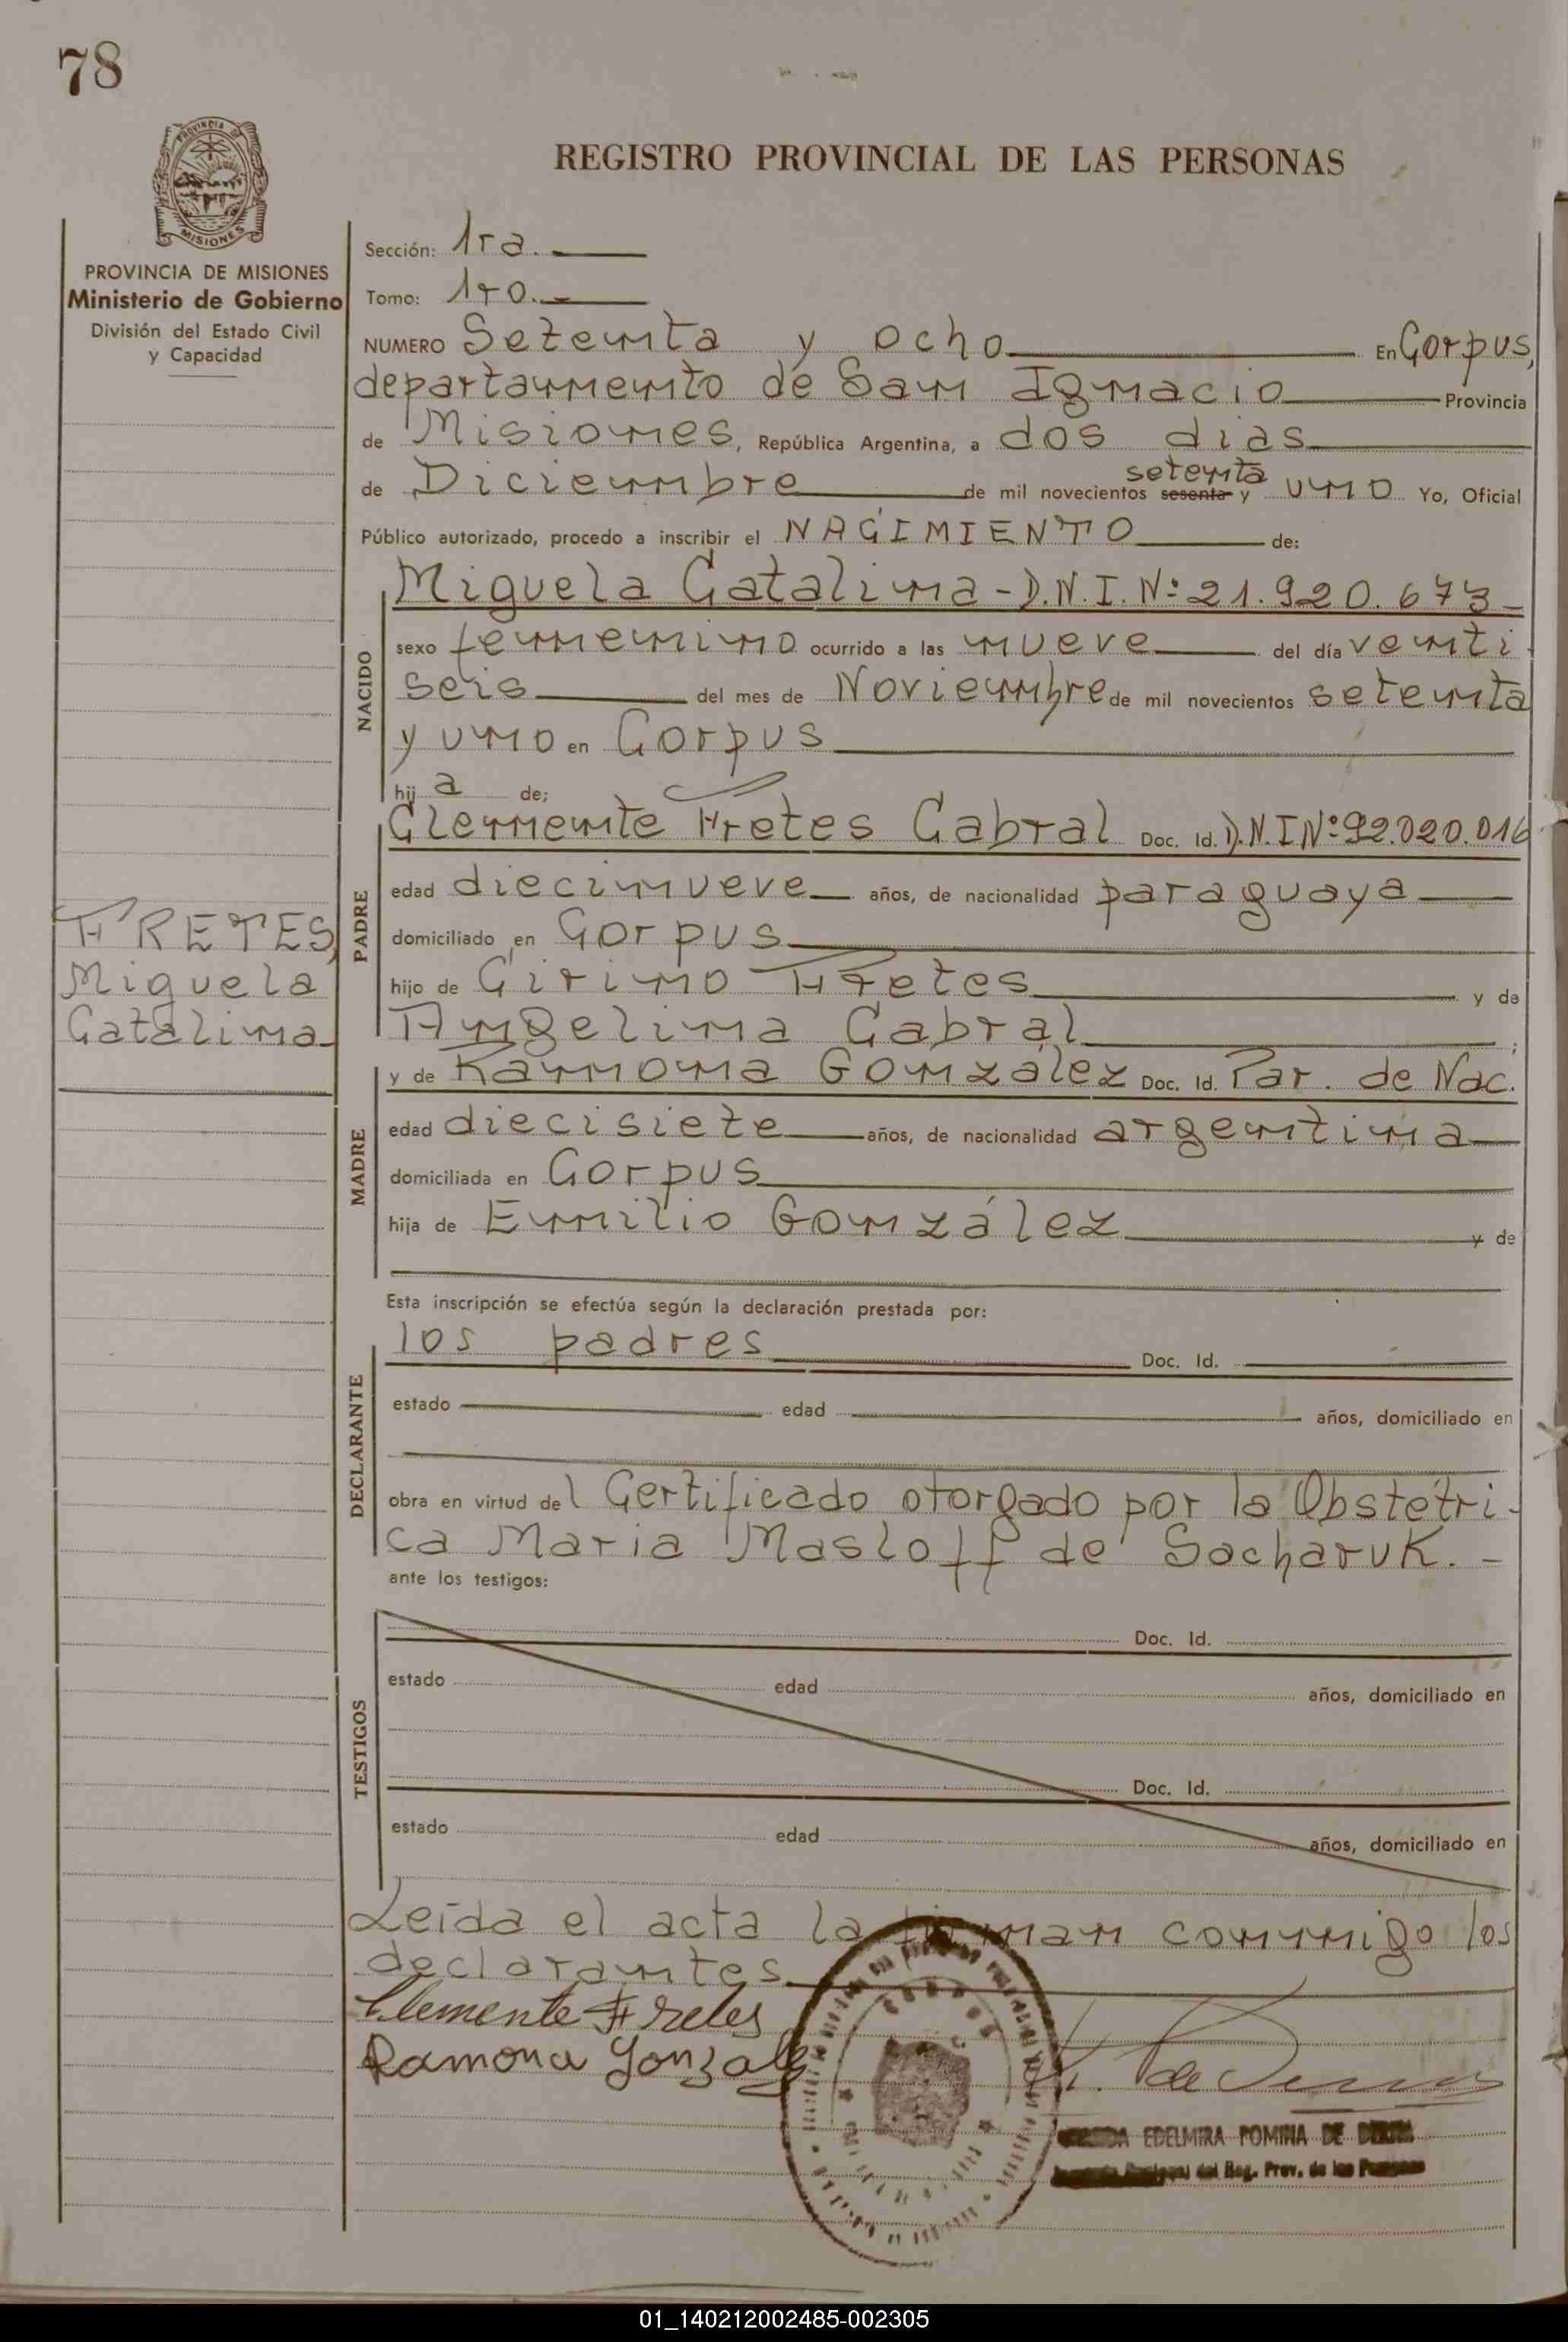 78
PROVINCIA DE
MISIONES
REGISTRO PROVINCIAL DE LAS PERSONAS
PROVINCIA DE MISIONES
Ministerio de Gobierno
División del Estado Civil
y Capacidad
Sección: 1ra.
Tomo: 1ro.
NUMERO Setenta y ocho En Corpus,
departamento de San Ignacio Provincia
de Misiones, República Argentina, a dos dias
de Diciembre de mil novecientos sesenta setenta y uno Yo, Oficial
Público autorizado, procedo a inscribir el NACIMIENTO de:
NACIDO
Miguela Catalina - D.N.I. Nº 21.920.673
sexo femenino ocurrido a las nueve del día venti
seis del mes de Noviembre de mil novecientos setenta
y uno en Corpus
hij a de;
PADRE
Clemente Fretes Cabral Doc. Id. D.N.I Nº 92.020.016
edad diecinueve años, de nacionalidad paraguaya
domiciliado en Corpus
hijo de Cirino Fretes y de
Angelina Cabral ;
FRETES,
Miguela
Catalina
MADRE
y de Ramona González Doc. Id. Par. de Nac.
edad diecisiete años, de nacionalidad argentina
domiciliada en Corpus
hija de Emilio González y de
Esta inscripción se efectúa según la declaración prestada por:
DECLARANTE
los padres Doc. Id.
estado edad años, domiciliado en
obra en virtud del Certificado otorgado por la Obstétri-
ca Maria Masloff de Sacharuk. -
ante los testigos:
TESTIGOS
Doc. Id.
estado edad años, domiciliado en
Doc. Id.
estado edad años, domiciliado en
Leída el acta la firman conmigo los
declarantes
Clemente Fretes
Ramona Gonzalez
EDELMIRA POMINA DE
del Reg. Prov. de las Personas
01_140212002485-002305